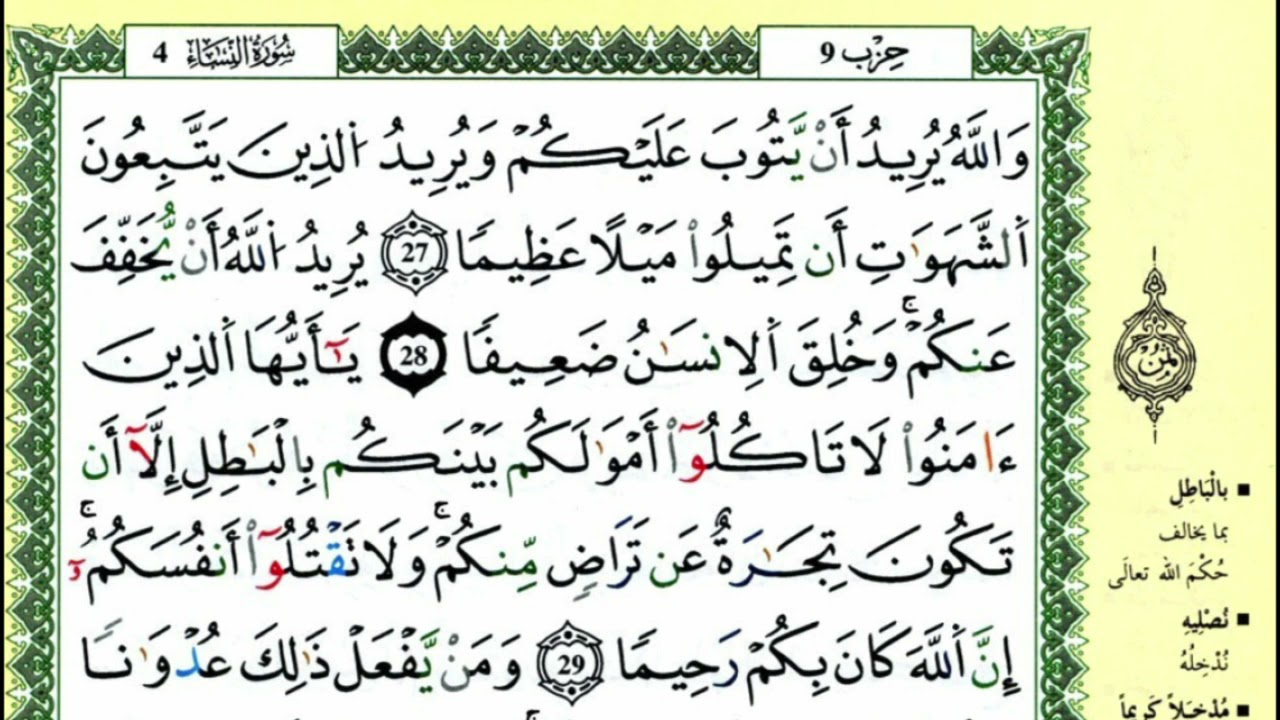 سُورَةُ النِّسَاءِ 4
حِزْب 9
وَاللَّهُ يُرِيدُ أَنْ يَّتُوبَ عَلَيْكُمْ وَيُرِيدُ اُلذِينَ يَتَّبِعُونَ
اَلشَّهَوَٰتِ أَن تَمِيلُواْ مَيْلًا عَظِيمًا 27 يُرِيدُ اُللَّهُ أَنْ يُّخَفِّفَ
عَنكُمْۚ وَخُلِقَ اَلِانسَٰنُ ضَعِيفًا 28 يَٰٓأَيُّهَا اَلذِينَ
ءَامَنُواْ لَا تَاكُلُوٓاْ أَمْوَٰلَكُم بَيْنَكُم بِالْبَٰطِلِ إِلَّآ أَن
تَكُونَ تِجَٰرَةٌ عَن تَرَاضٍ مِّنكُمْۚ وَلَا تَقْتُلُوٓاْ أَنفُسَكُمُۥٓۚ
إِنَّ اَللَّهَ كَانَ بِكُمْ رَحِيمًا 29 وَمَنْ يَّفْعَلْ ذَٰلِكَ عُدْوَٰنًا
ثمن
■ بالْبَاطِلِ
بما يخالف
حُكْمَ الله تعالَى
■ نُصْلِيهِ
نُدْخِلُهُ
■ مُدْخَلاً كَرِيماً